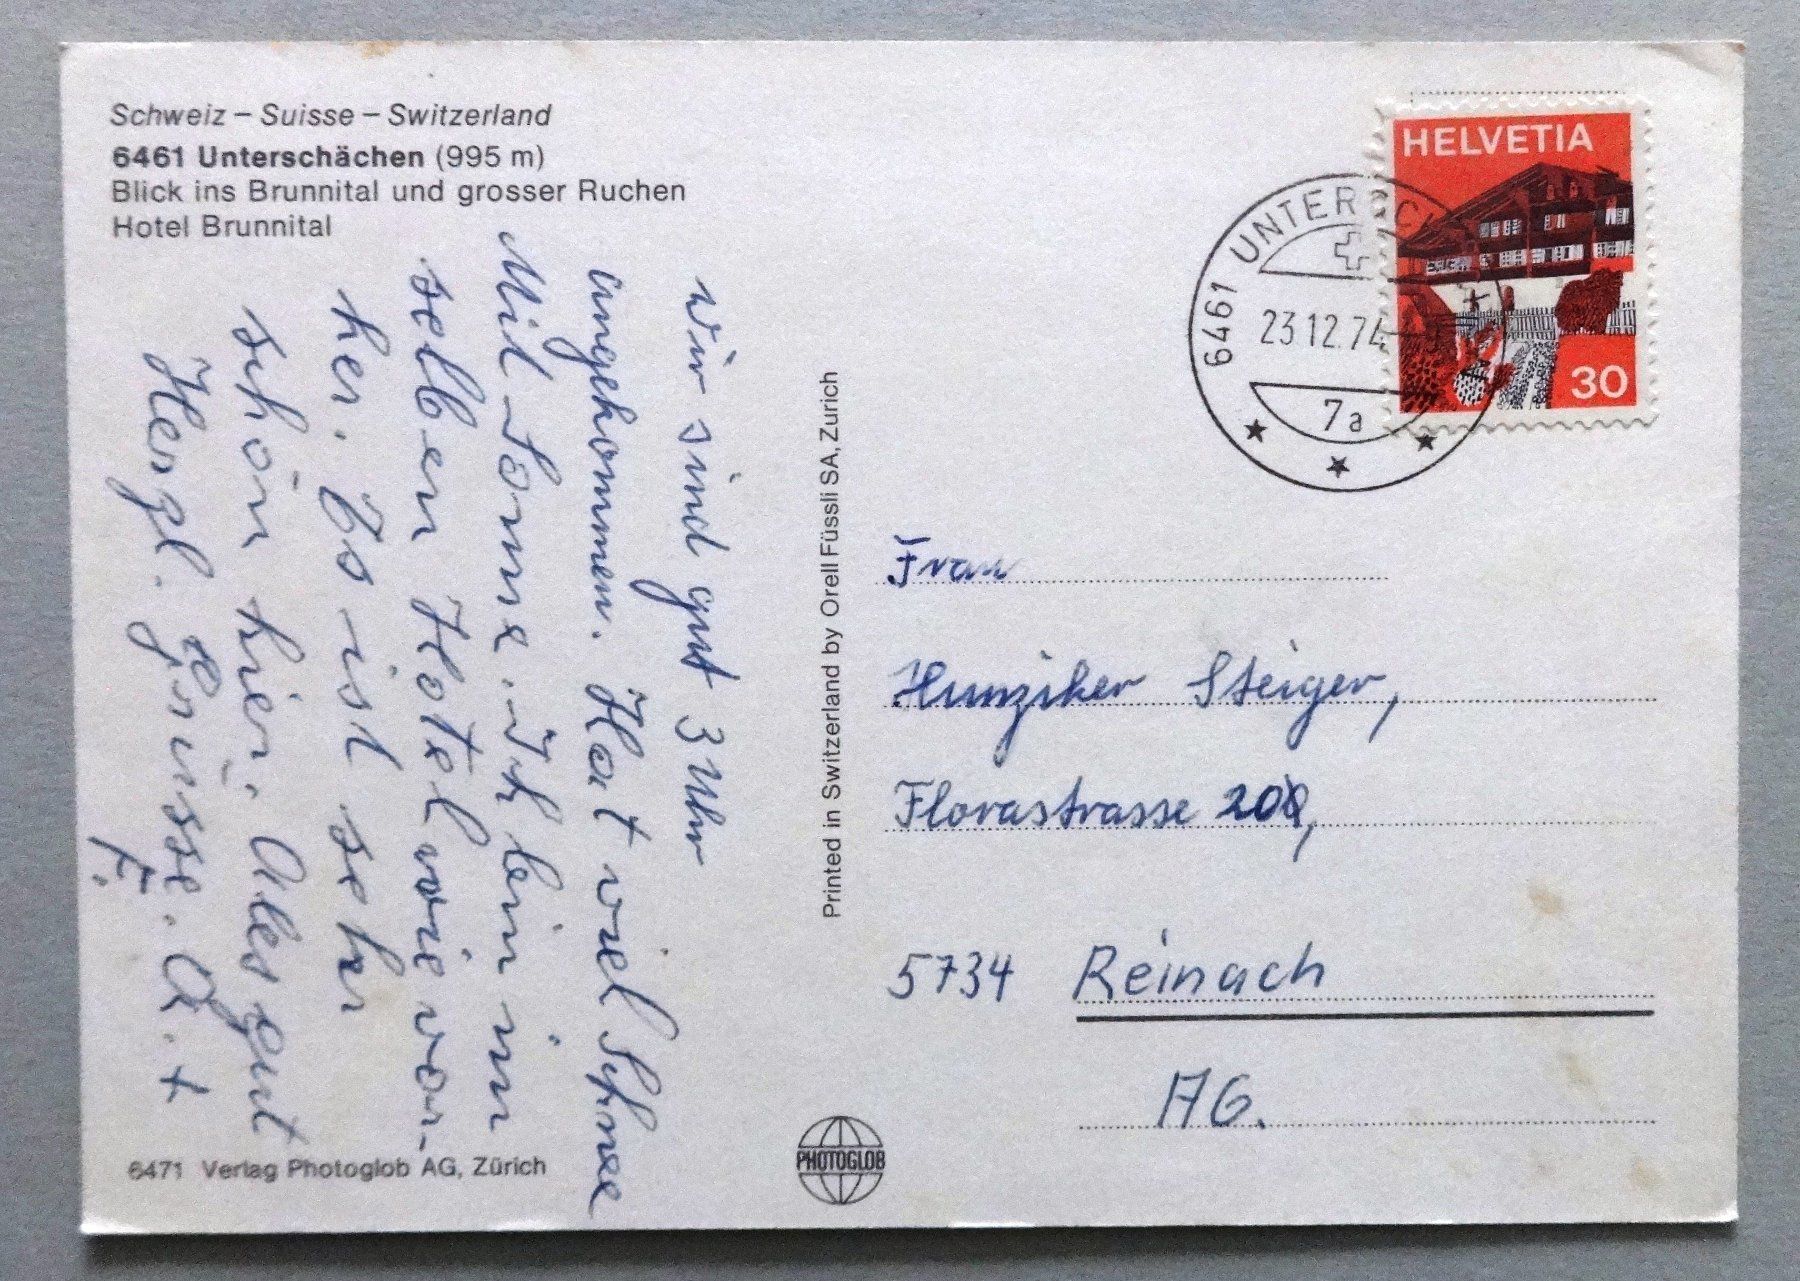 Schweiz – Suisse – Switzerland
6461 Unterschächen (995 m)
Blick ins Brunnital und grosser Ruchen
Hotel Brunnital
wir sind gut 3 Uhr
angekommen. Hat viel Schnee
Mit Sonne. Ich bin im
selben Hotel wie vor-
her. Es ist sehr
schön hier. Alles gut
Herzl. Grüsse. A. +
F.
6471 Verlag Photoglob AG, Zürich
Printed in Switzerland by Orell Füssli SA, Zurich
PHOTOGLOB
HELVETIA
30
6461 UNTERSCH
23.12.74
7a
Frau
Hunziker Steiger,
Florastrasse 20,
5734 Reinach
AG.